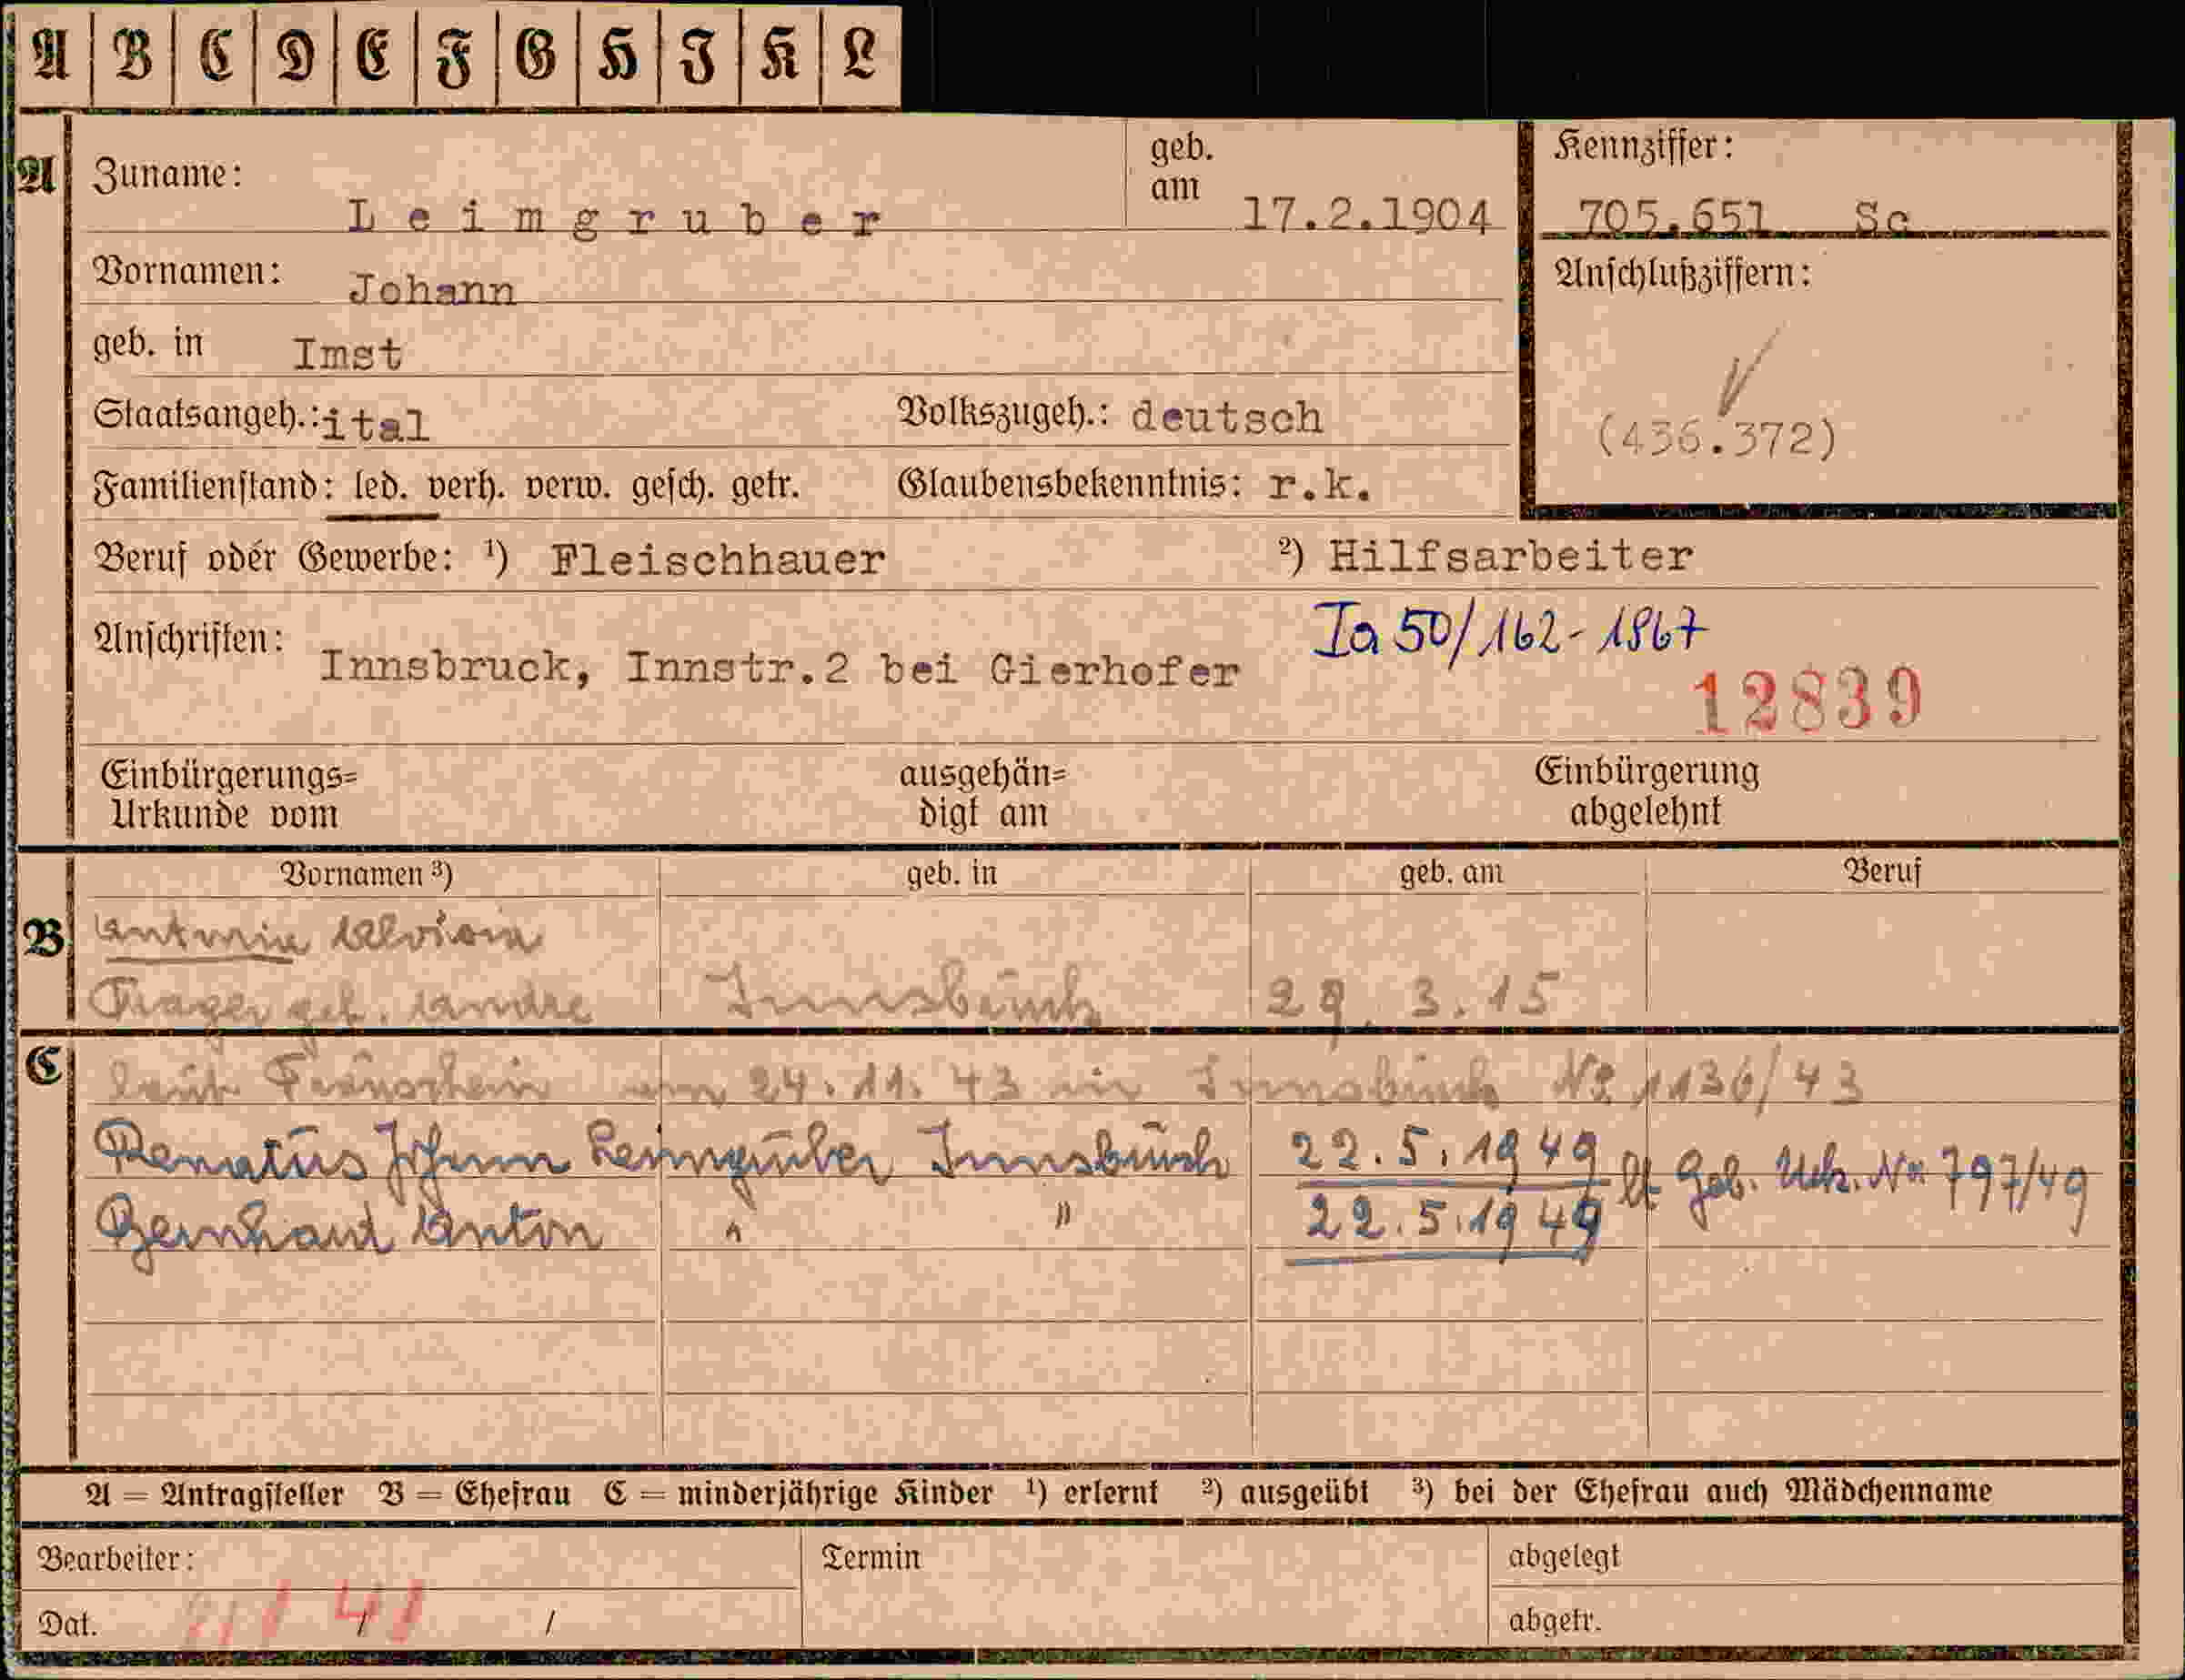 A B C D E F G H I K L
A Zuname: Leimgruber geb. am 17.2.1904
Kennziffer: 705.651 Sc
Vornamen: Johann
Anschlußziffern:
geb. in Imst
Staatsangeh.: ital Volkszugeh.: deutsch
(436.372)
Familienstand: led. verh. verw. gesch. getr. Glaubensbekenntnis: r.k.
Beruf oder Gewerbe: ¹) Fleischhauer ²) Hilfsarbeiter
Ia 50/162-1867
Anschriften: Innsbruck, Innstr.2 bei Gierhofer
12839
Einbürgerungs= ausgehän= Einbürgerung
Urkunde vom digt am abgelehnt
Vornamen ³) geb. in geb. am Beruf
B Antonia Aloisia
geb. Andre Innsbruck 29.3.15
C laut Trauschein vom 24.11.43 in Innsbruck No 1136/43
Renatus Johann Leimgruber Innsbruck 22.5.1949 lt Geb. Urk. No 797/49
Bernhard Anton " " 22.5.1949
A = Antragsteller B = Ehefrau C = minderjährige Kinder ¹) erlernt ²) ausgeübt ³) bei der Ehefrau auch Mädchenname
Bearbeiter: Termin abgelegt
Dat. / / abgetr.